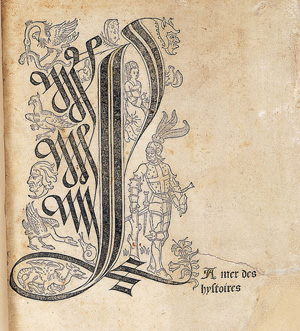 LA mer des
hyſtoires